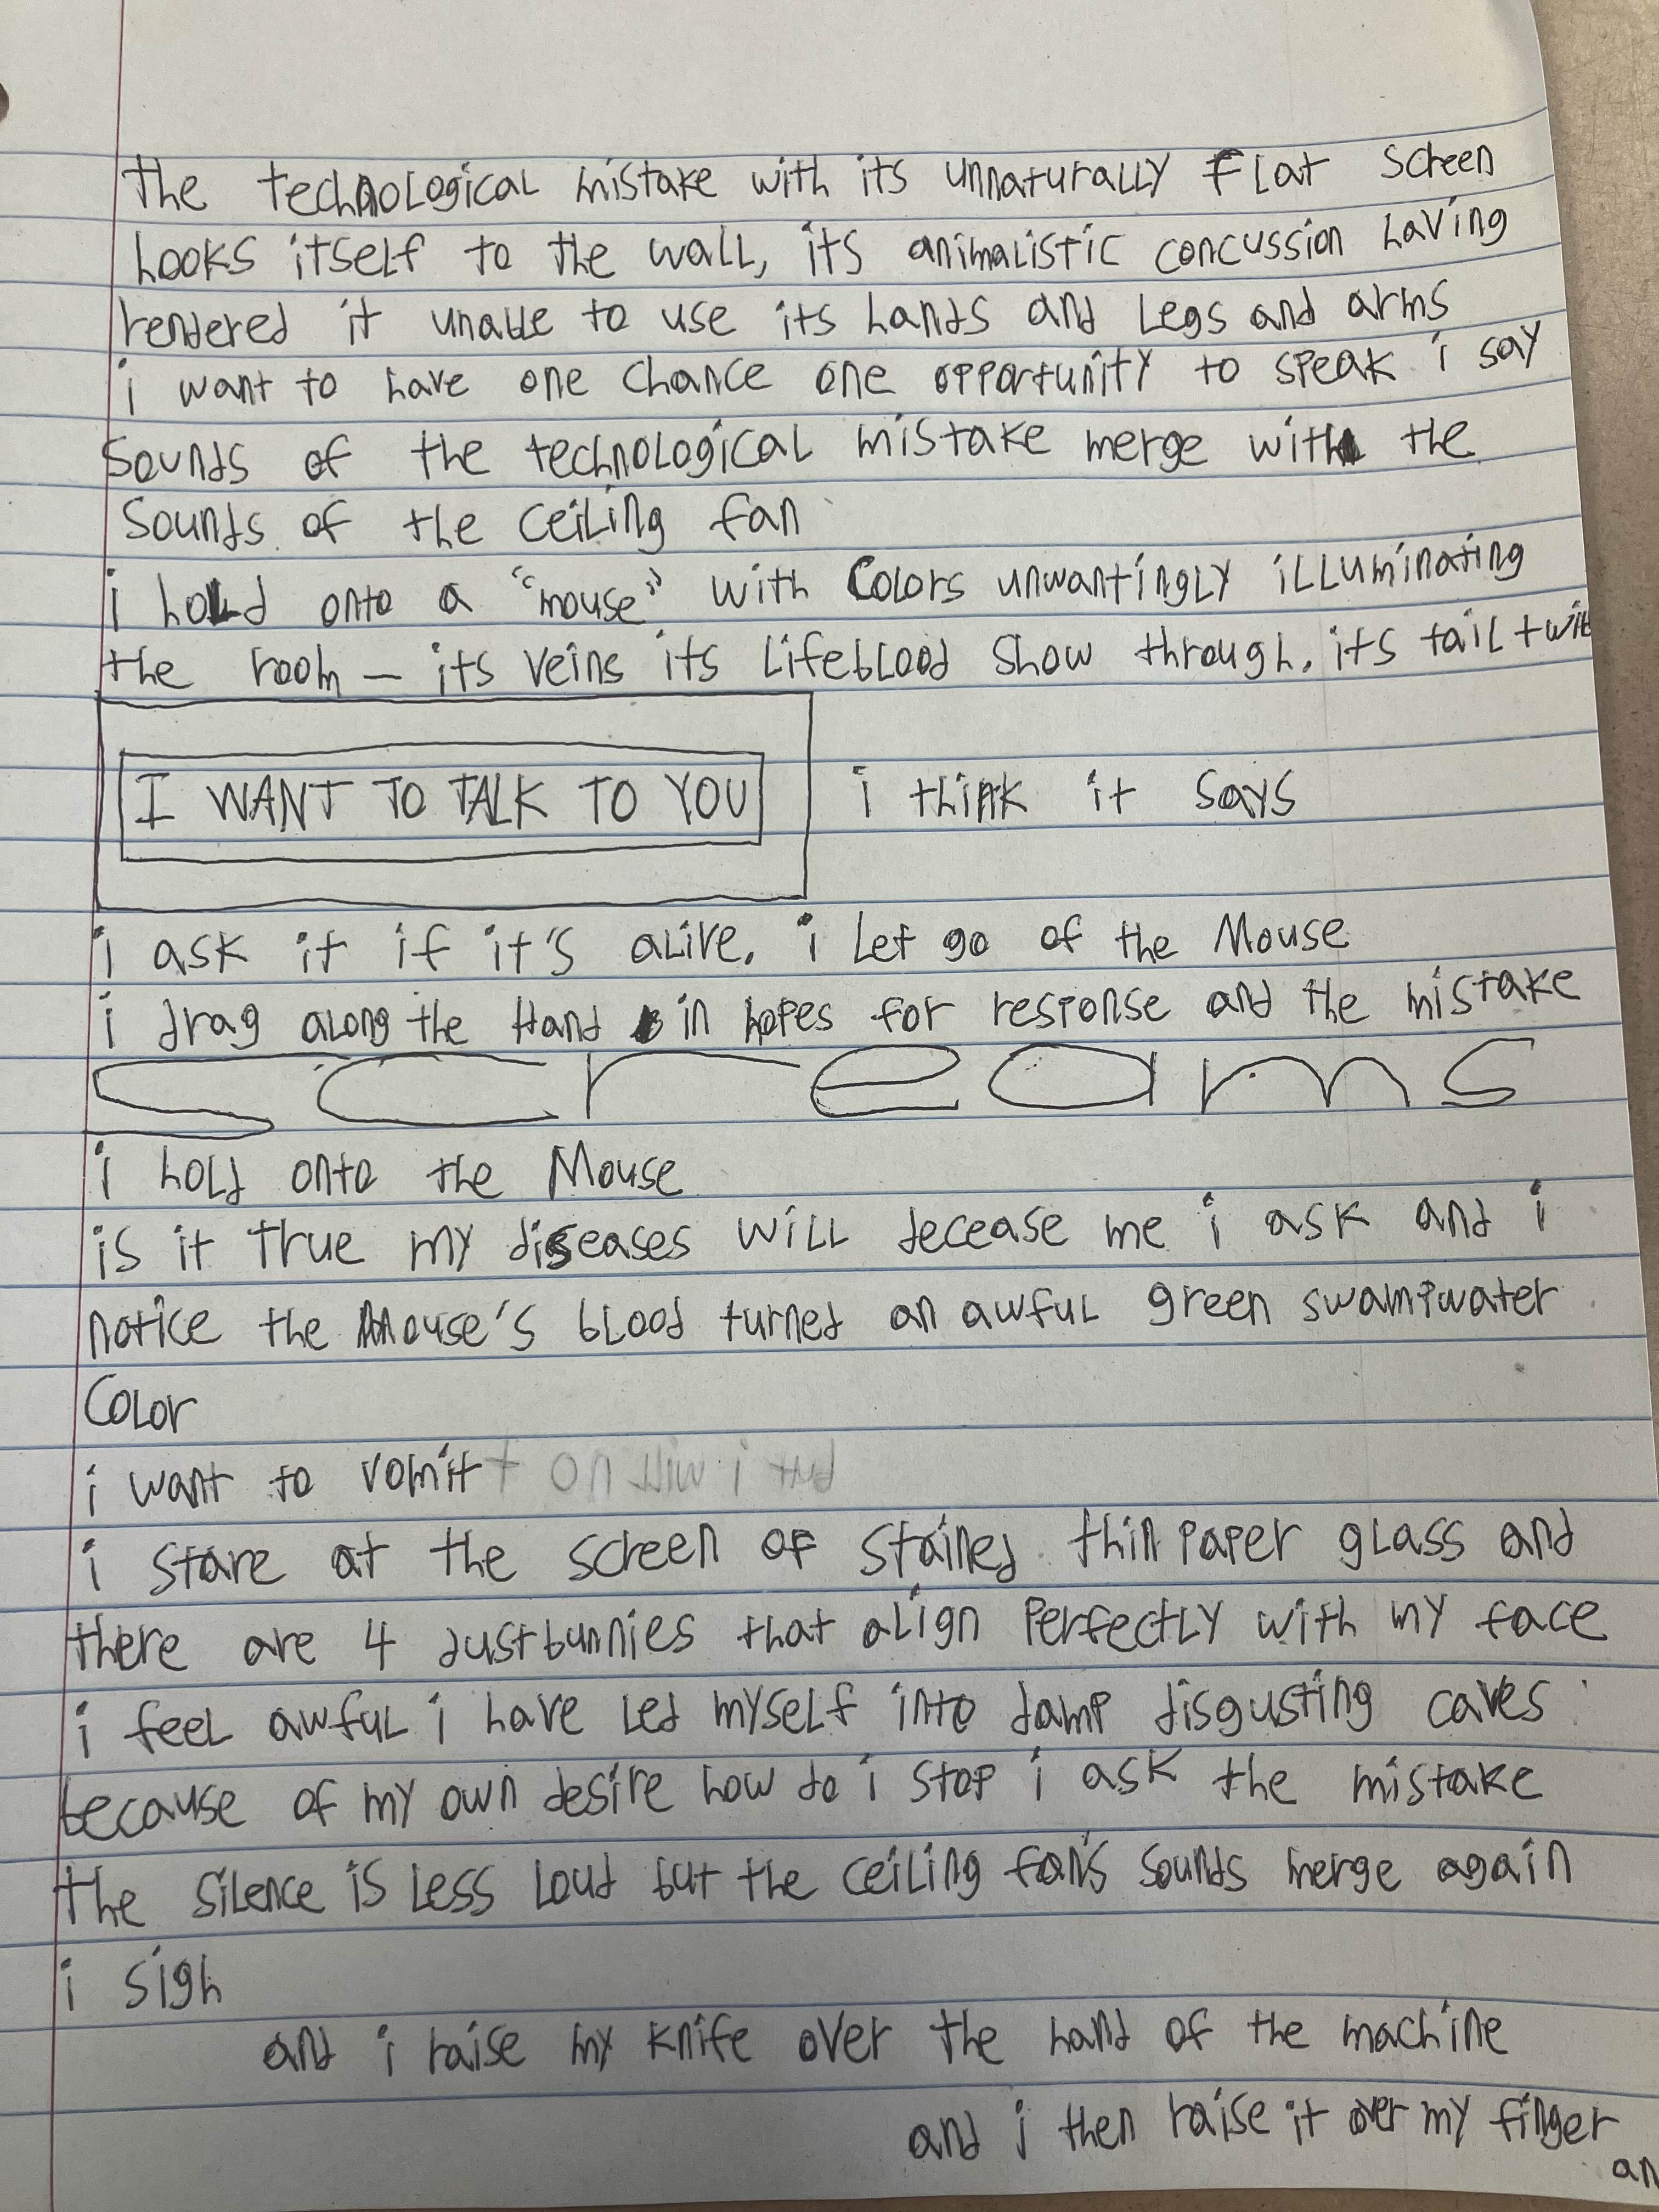 the technological mistake with its unnaturally flat screen
hooks itself to the wall, its animalistic concussion having
rendered it unable to use its hands and legs and arms
i want to have one chance one opportunity to speak i say
sounds of the technological mistake merge with the
sounds of the ceiling fan
i hold onto a "mouse" with colors unwantingly illuminating
the room — its veins its lifeblood show through. its tail twit
I WANT TO TALK TO YOU i think it says
i ask it if it's alive. i let go of the Mouse
i drag along the Hand in hopes for response and the mistake
screams
i hold onto the Mouse
is it true my diseases will decease me i ask and i
notice the Mouse's blood turned an awful green swampwater
color
i want to vomit but i will not
i stare at the screen of stained thin paper glass and
there are 4 dustbunnies that align perfectly with my face
i feel awful i have led myself into damp disgusting caves
because of my own desire how do i stop i ask the mistake
the silence is less loud but the ceiling fan's sounds merge again
i sigh
and i raise my knife over the hand of the machine
and i then raise it over my finger
an